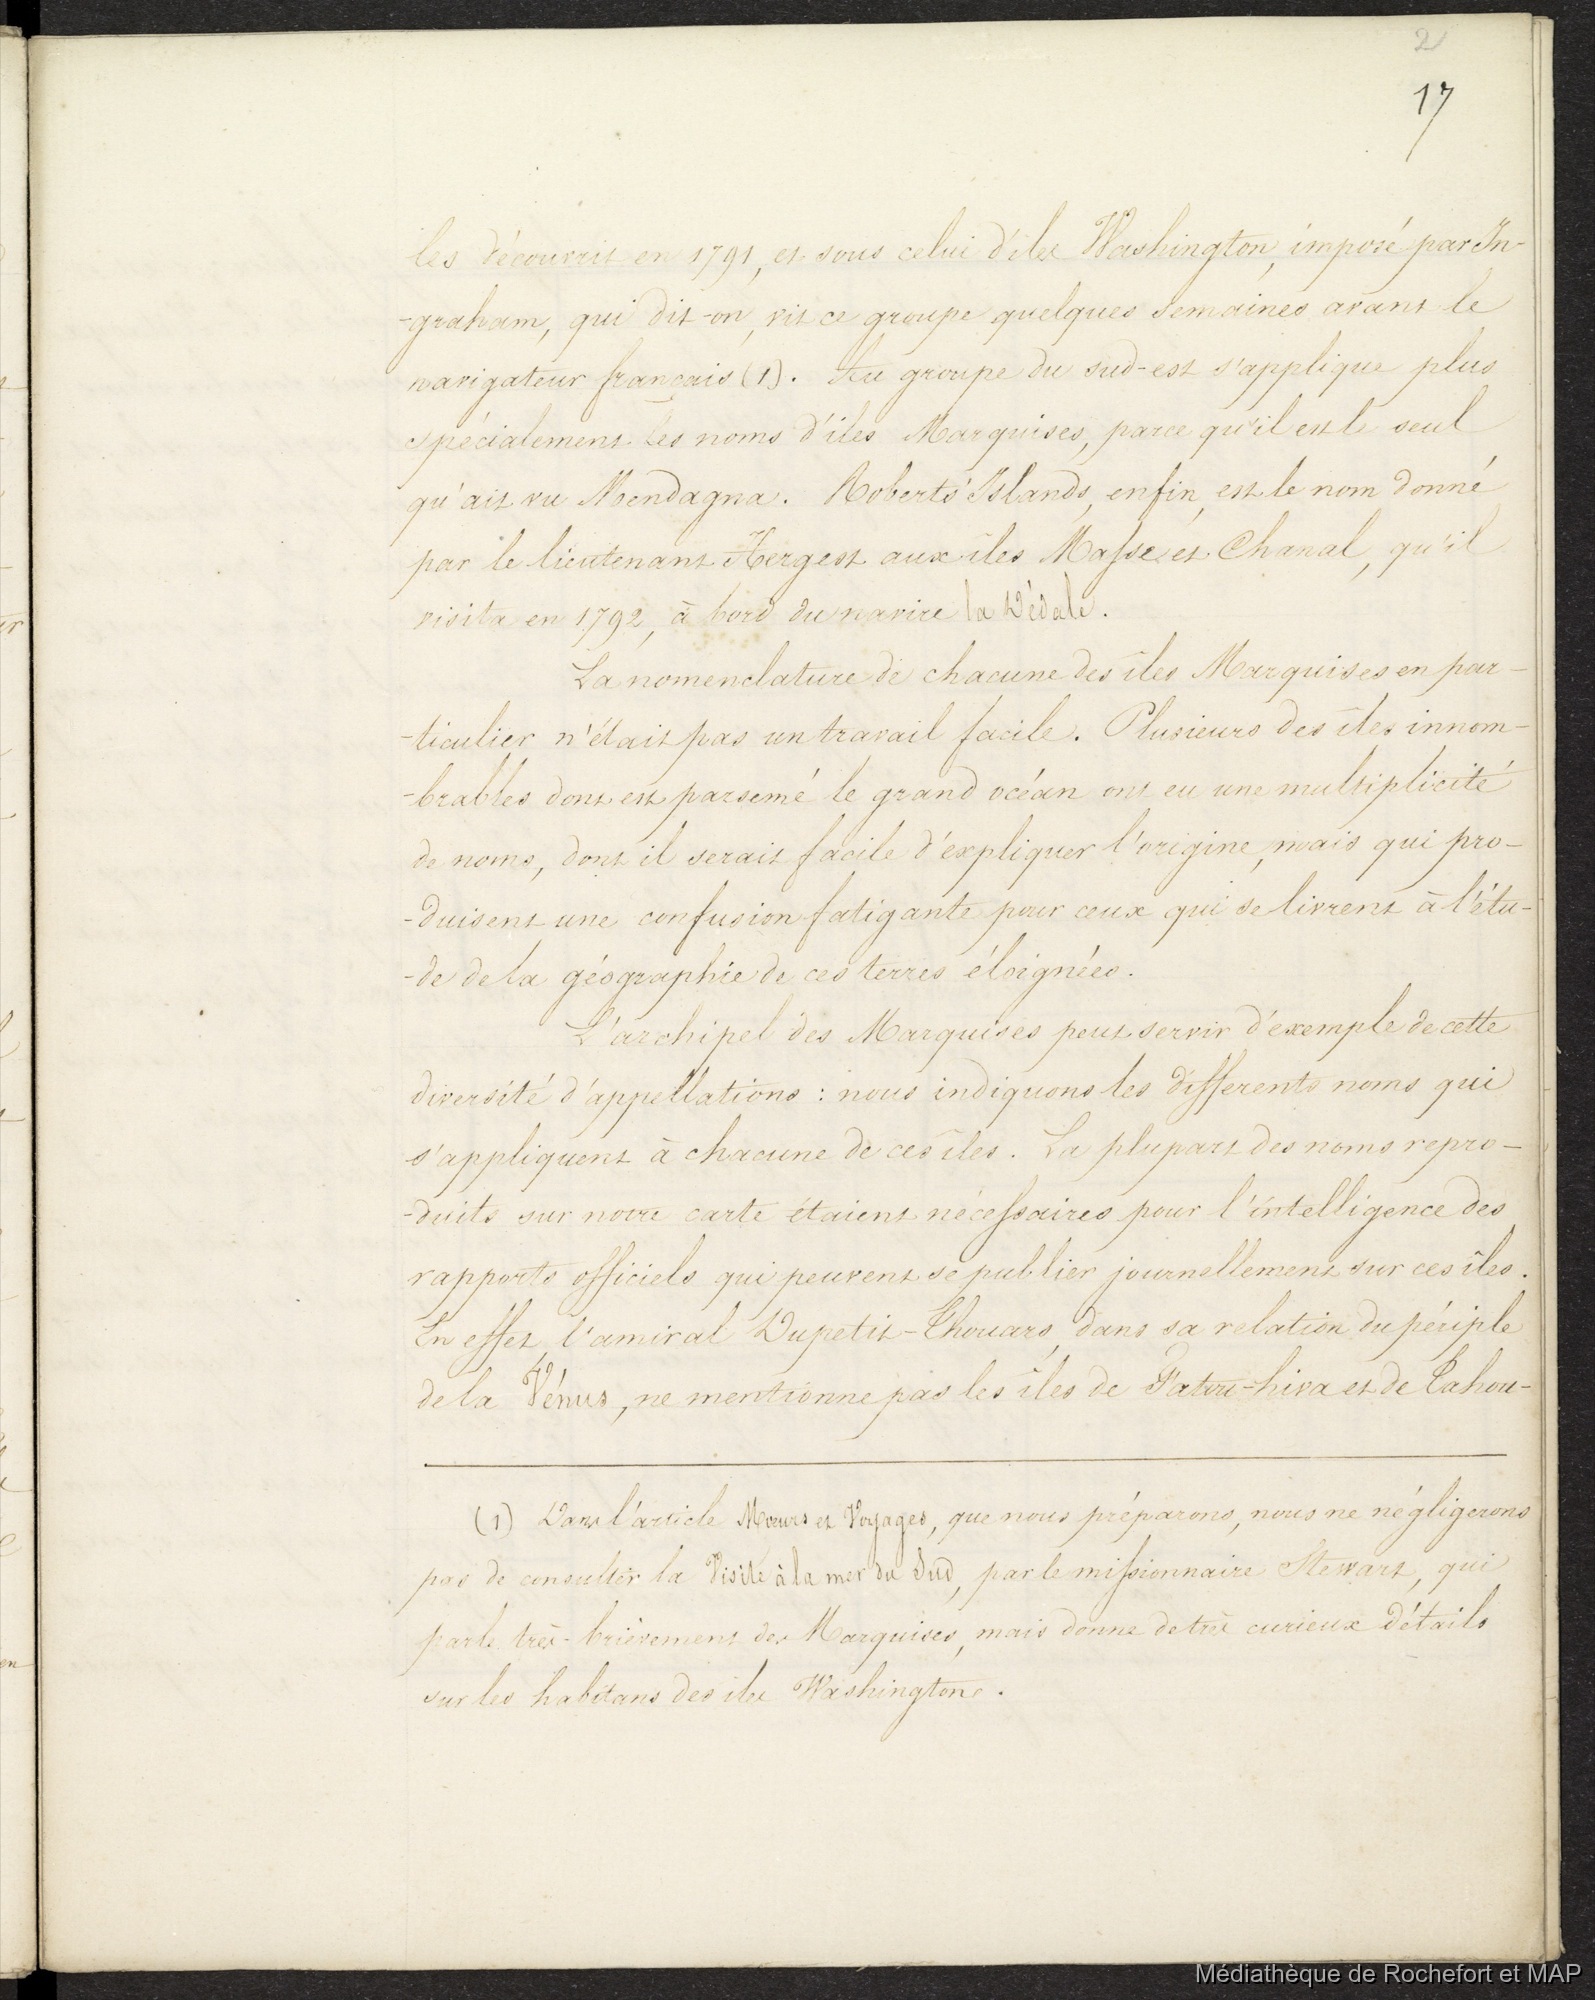 2
17
les découvrit en 1791, et sous celui d'iles Washington, imposé par In-
-graham, qui dit-on, vit ce groupe quelques semaines avant le
navigateur français (1). Au groupe du sud-est s'applique plus
spécialement les noms d'iles Marquises, parce qu'il est le seul
qu'ait vu Mendagna. Roberts' Islands, enfin, est le nom donné
par le lieutenant Hergest aux îles Masse et Chanal, qu'il
visita en 1792, à bord du navire la Dédale.
La nomenclature de chacune des îles Marquises en par-
-ticulier n'était pas un travail facile. Plusieurs des îles innom-
-brables dont est parsemé le grand océan ont eu une multiplicité
de noms, dont il serait facile d'expliquer l'origine, mais qui pro-
-duisent une confusion fatigante pour ceux qui se livrent à l'étu-
-de de la géographie de ces terres éloignées.
L'archipel des Marquises peut servir d'exemple de cette
diversité d'appellations : nous indiquons les differents noms qui
s'appliquent à chacune de ces îles. La plupart des noms repro-
-duits sur notre carte étaient nécessaires pour l'intelligence des
rapports officiels qui peuvent se publier journellement sur ces îles.
En effet, l'amiral Dupetit-Thouars, dans sa relation du périple
de la Vénus, ne mentionne pas les îles de Fatou-hiva et de Tahou-
(1) Dans l'article Mœurs et Voyages, que nous préparons, nous ne négligerons
pas de consulter la Visite à la mer du Sud, par le missionnaire Stewart, qui
parle très-brièvement des Marquises, mais donne de très curieux détails
sur les habitans des iles Washington.
Médiathèque de Rochefort et MAP